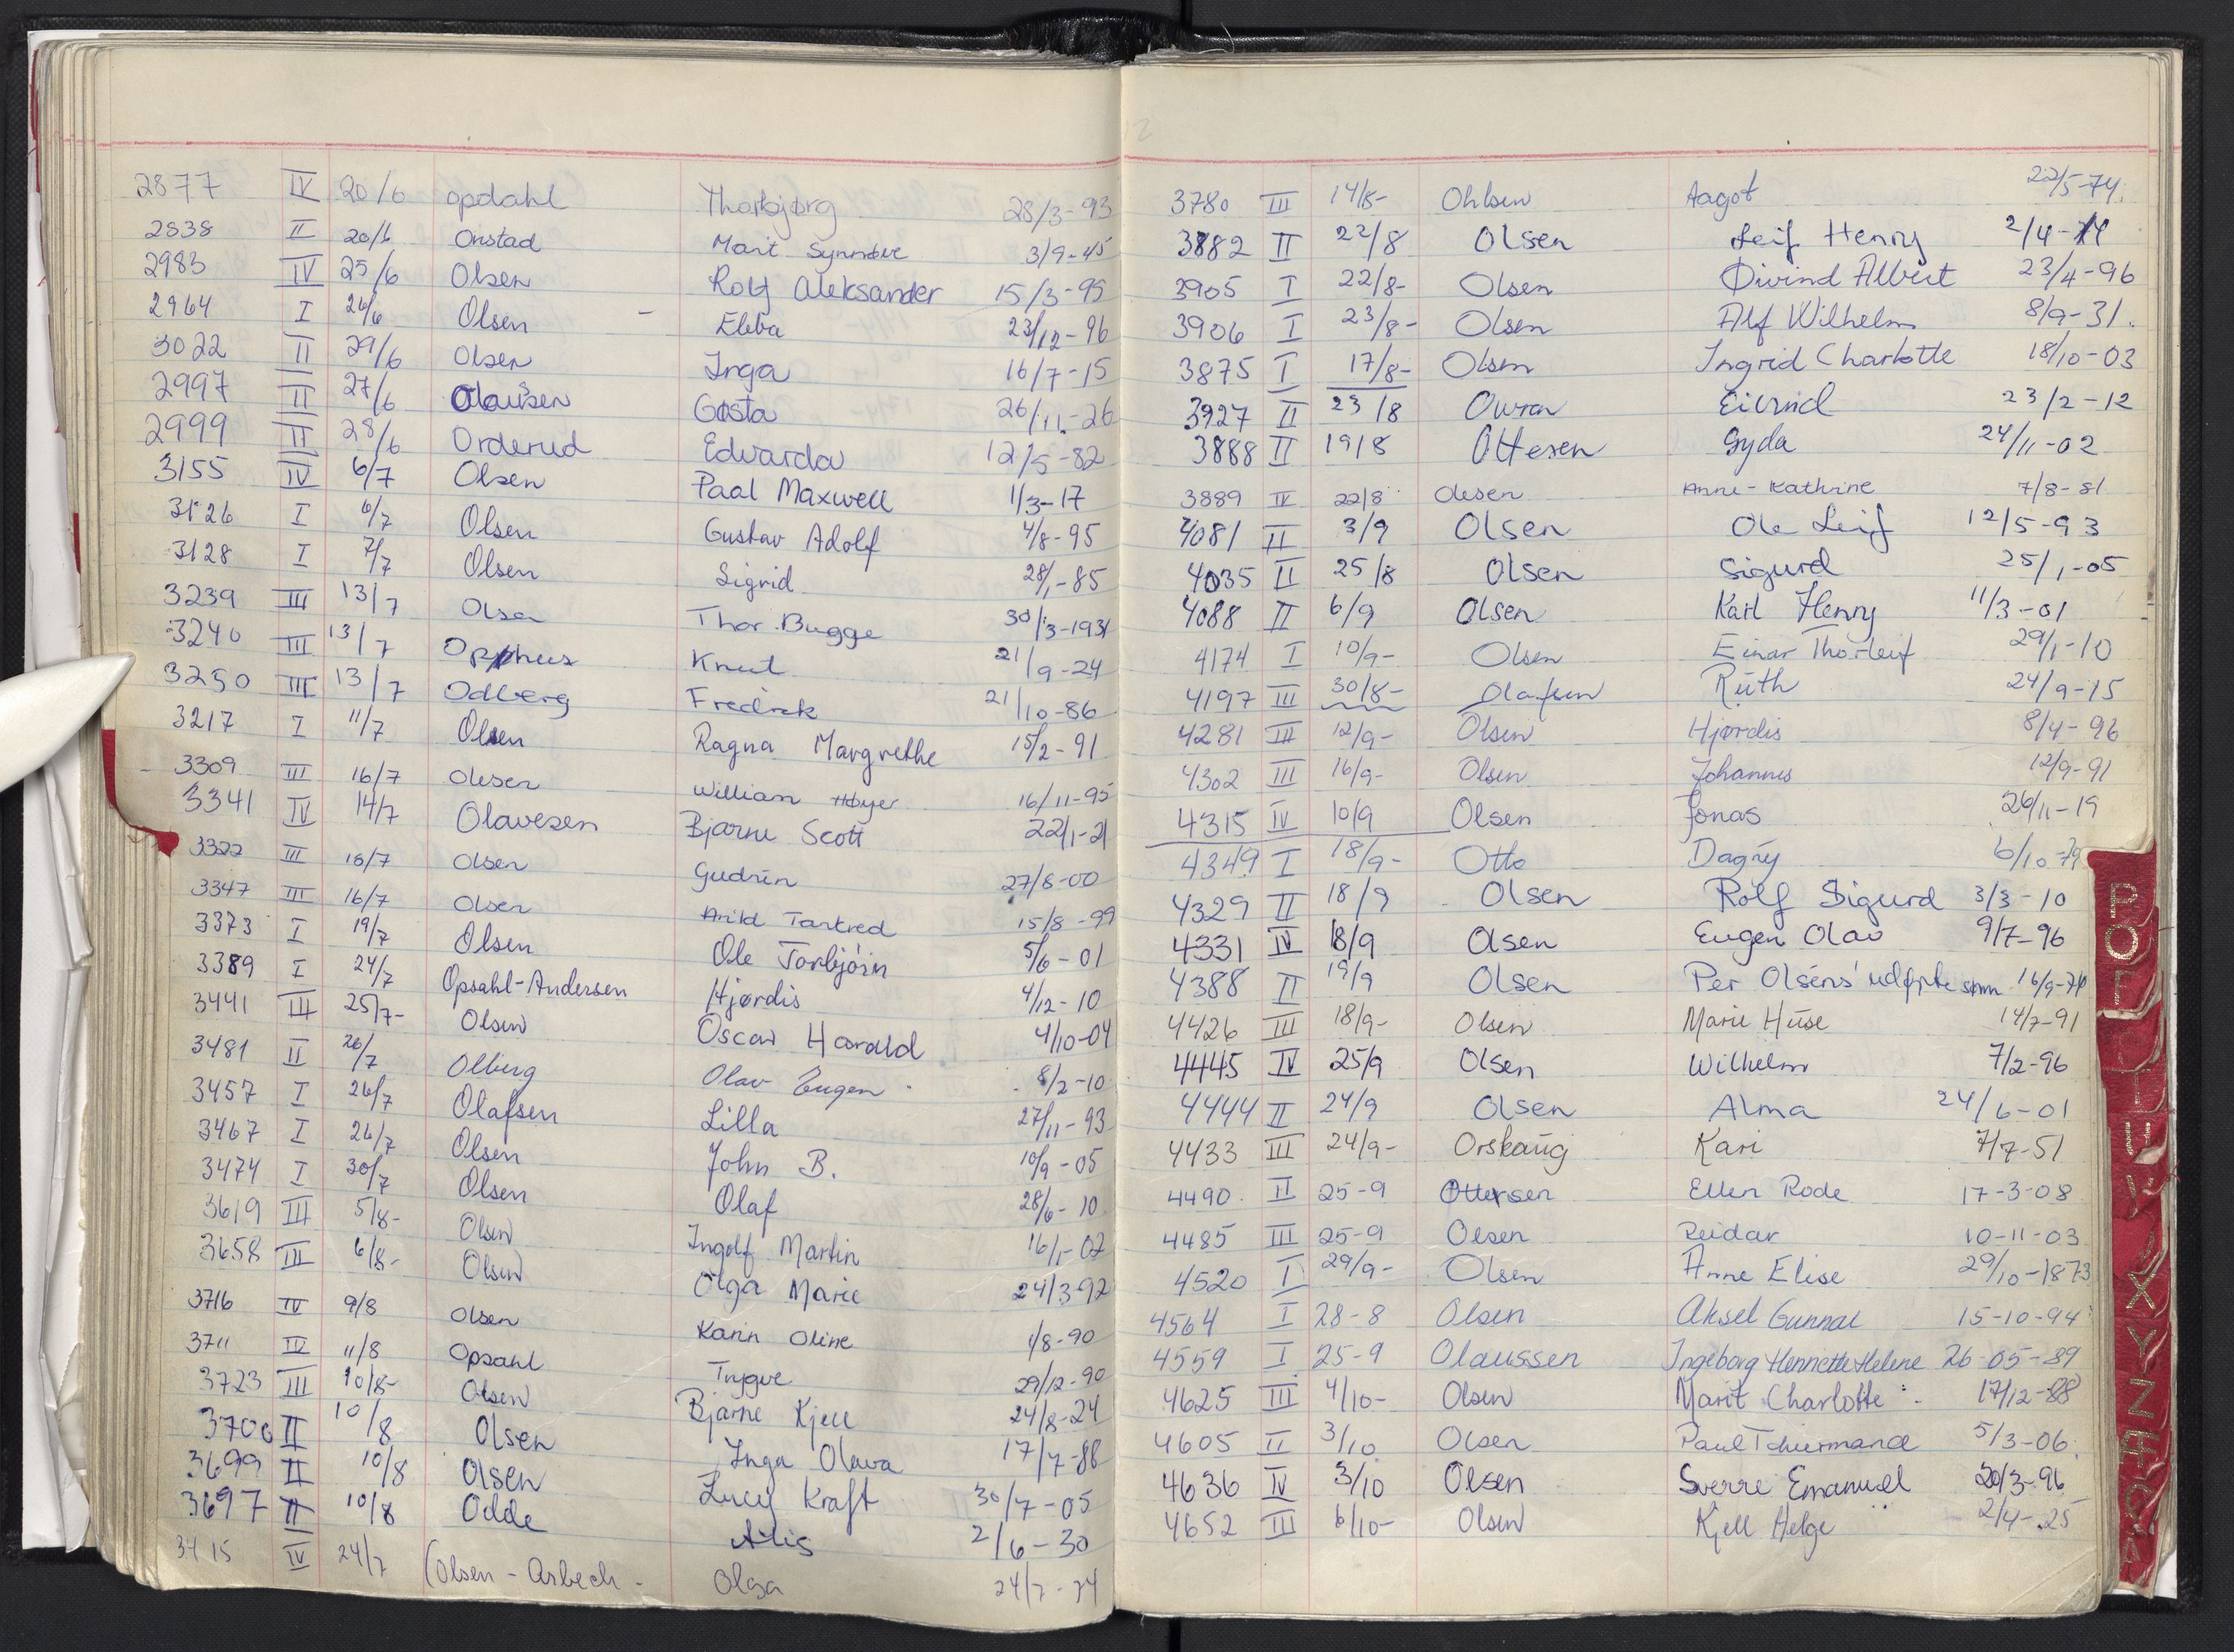 2877 IV 20/6 Opdahl Thorbjørg 28/3-93
2838 II 20/6 Onstad Marit Synnøve 3/9-45
2983 IV 25/6 Olsen Rolf Aleksander 15/3-95
2964 I 26/6 Olsen - Ebba 23/12-96
3022 II 29/6 Olsen Inga 16/7-15
2997 II 27/6 Olaussen Gøsta 26/11-26
2999 II 28/6 Orderud Edvarda 12/5-82
3155 IV 6/7 Olsen Paal Maxwell 1/3-17
3126 I 6/7 Olsen Gustav Adolf 4/8-95
3128 I 7/7 Olsen Sigrid 28/1-85
3239 III 13/7 Olsen Thor Bugge 30/3-1931
3240 III 13/7 Opphus Knut 21/9-24
3250 III 13/7 Odberg Fredrik 21/10-86
3217 I 11/7 Olsen Ragna Margrethe 15/2-91
3309 III 16/7 Olesen William Høyer 16/11-95
3341 IV 14/7 Olavesen Bjarne Scott 22/1-21
3322 III 16/7 Olsen Gudrun 27/8-00
3347 III 16/7 Olsen Arild Tankred 15/8-99
3373 I 19/7 Olsen Ole Torbjörn 5/6-01
3389 I 24/7 Opsahl-Andersen Hjørdis 4/12-10
3441 III 25/7- Olsen Oscar Harald 4/10-04
3481 II 26/7 Olberg Olav Eugen 8/2-10
3457 I 26/7 Olafsen Lilla 27/11-93
3467 I 26/7 Olsen John B. 10/9-05
3474 I 30/7 Olsen Olaf 28/6-10
3619 III 5/8- Olsen Ingolf Martin 16/1-02
3658 III 6/8- Olsen Olga Marie 24/3-92
3716 IV 9/8 Olsen Karin Oline 1/8-90
3711 IV 11/8 Opsahl Trygve 29/12-90
3723 III 10/8- Olsen Bjarne Kjell 24/8-24
3700 II 10/8 Olsen Inga Olava 17/7-88
3699 II 10/8 Olsen Lucy Kraft 30/7-05
3697 II 10/8 Odde Atis 2/6-30
3415 IV 24/7 (Olsen-Asbech- Olga 24/7-74
3780 III 14/8- Ohlsen Aagot 22/5-74.
3882 II 22/8 Olsen Leif Henry 2/4-14
3905 I 22/8- Olsen Øivind Albert 23/4-96
3906 I 23/8- Olsen Alf Wilhelm 8/9-31.
3875 I 17/8- Olsen Ingrid Charlotte 18/10-03
3927 II 23/8 Owren Eivind 23/2-12
3888 II 19/8 Ottesen Gyda 24/11-02
3889 IV 22/8 Olesen Anne-Kathrine 7/8-81
4081 II 3/9 Olsen Ole Leif 12/5-93
4035 II 25/8 Olsen Sigurd 25/1-05
4088 II 6/9 Olsen Karl Henry 11/3-01
4174 I 10/9- Olsen Einar Thorleif 29/1-10
4197 III 30/8- Olafsen Ruth 24/9-15
4281 III 12/9- Olsen Hjørdis 8/4-96
4302 III 16/9- Olsen Johannes 12/9-91
4315 IV 10/9 Olsen Jonas 26/11-19
4349 I 18/9- Otto Dagny 6/10-79
4329 II 18/9 Olsen Rolf Sigurd 3/3-10
4331 IV 18/9 Olsen Eugen Olav 9/7-96
4388 II 19/9 Olsen Per Olsens' udøpte sønn 16/9-74
4426 III 18/9- Olsen Marie Huse 14/7-91
4445 IV 25/9 Olsen Wilhelm 7/2-96
4444 II 24/9 Olsen Alma 24/6-01
4433 III 24/9- Orskaug Kari 7/7-51
4490 II 25-9 Ottersen Ellen Rode 17-3-08
4485 III 25-9 Olsen Reidar 10-11-03
4520 I 29/9- Olsen Anne Elise 29/10-1873
4564 I 28-8 Olsen Aksel Gunnar 15-10-94
4559 I 25-9 Olaussen Ingeborg Hennette Helene 26-05-89
4625 III 4/10- Olsen Marit Charlotte 17/12-88
4605 II 3/10 Olsen Paul 5/3-06
4636 IV 3/10 Olsen Sverre Emanuel 20/3-96
4652 III 6/10- Olsen Kjell Helge 2/4-25
P
X
Y
Z